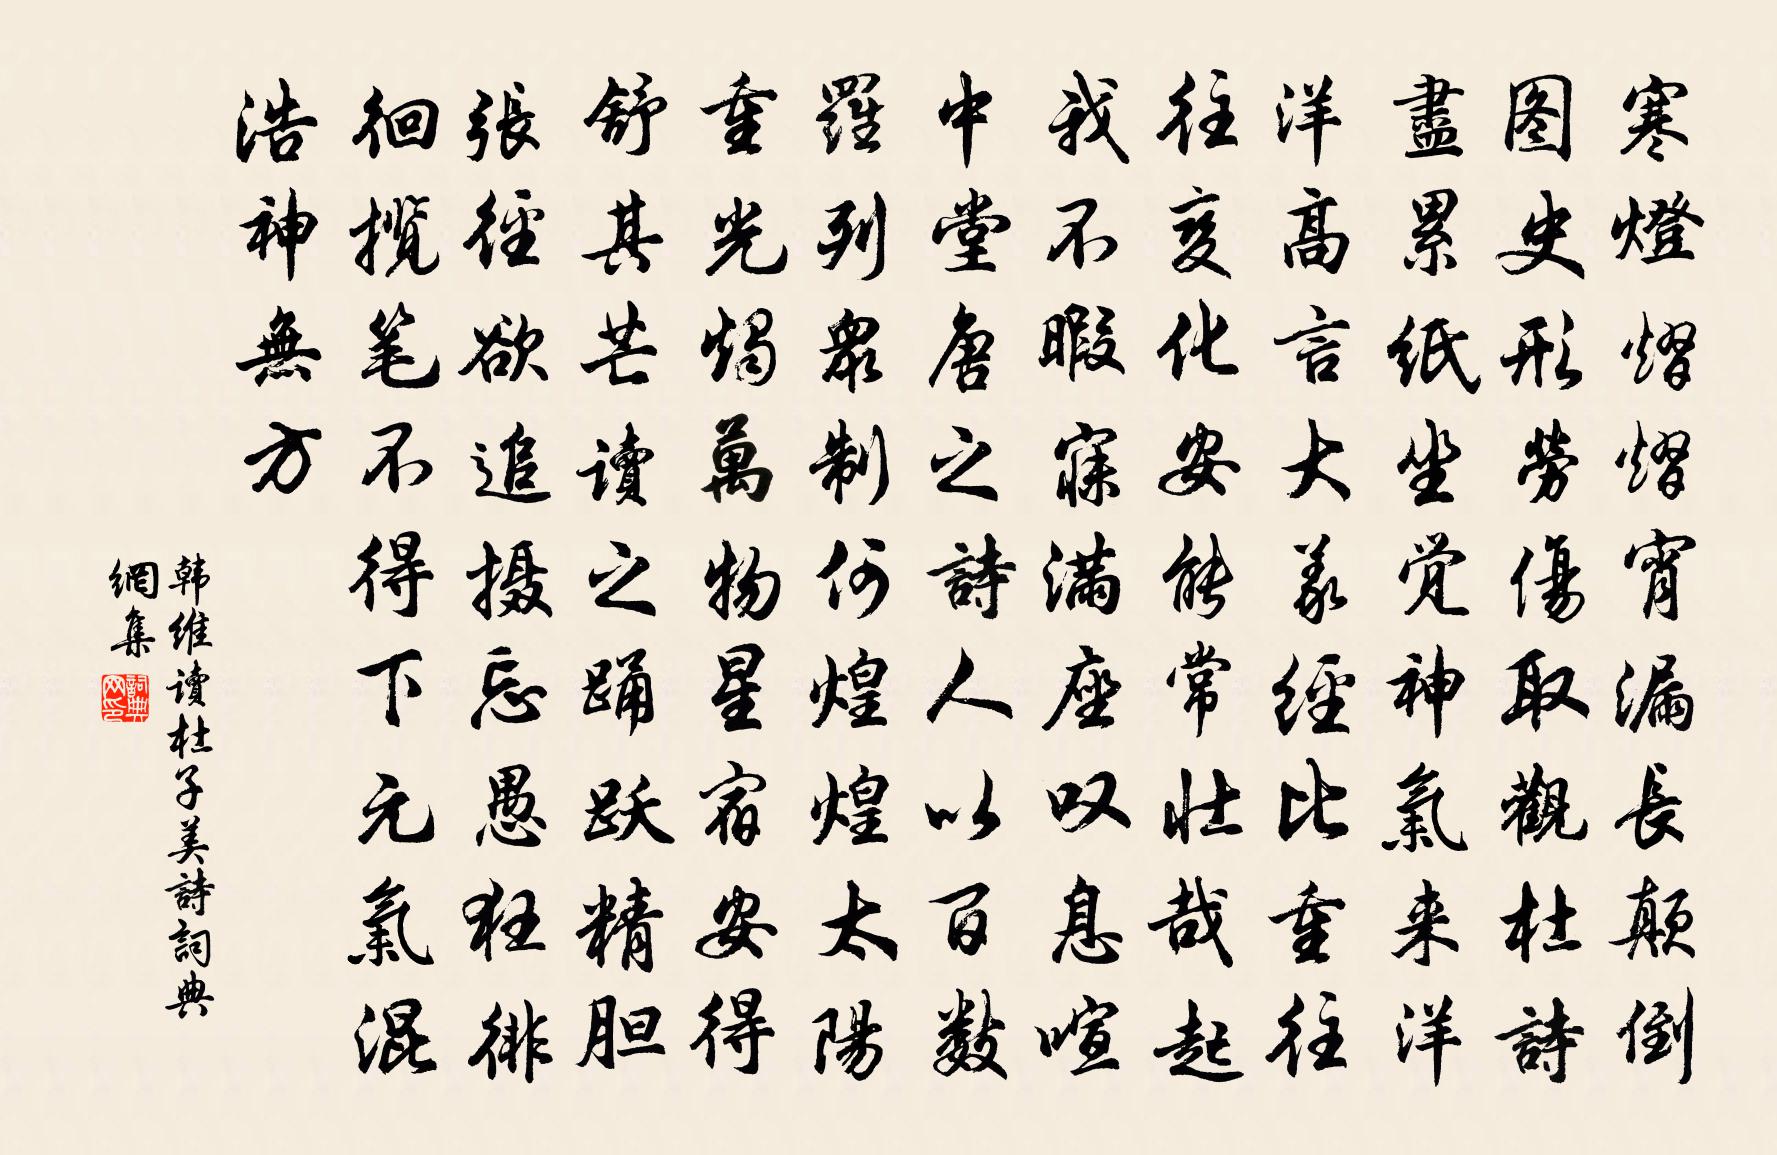 寒燈熠熠宵漏長顛倒
图史形勞傷取觀杜詩
盡累紙坐觉神氣来洋
洋高言大義經比重往
往変化安能常壮哉起
我不暇寐满座叹息喧
中堂唐之詩人以百数
羅列眾制何煌煌太陽
重光燭萬物星宿安得
舒其芒讀之踊跃精胆
張徑欲追摄忘愚狂徘
徊揽笔不得下元氣混
浩神無方
韩維讀杜子美詩詞典
網集
詞典
网